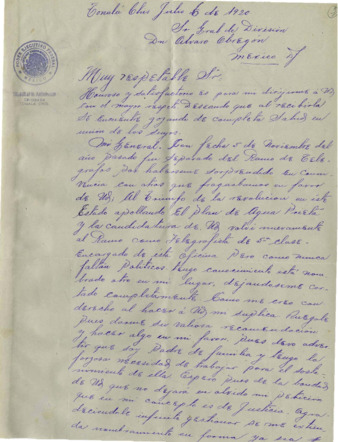 Tonalá Chis Julio 6 de 1920
Sr Gral de División
Dn Alvaro Obregón
Mexico D.F.
Muy respetable Sr.
Honroso y satisfactorio es para mi dirigirme á Vd
con el mayor respeto deseando que al recibirla
se encuentre gozando de completa salud en
union de los suyos.
Mi General. Con fecha 5 de Noviembre del
año pasado fui separado del Ramo de Telé-
grafos por haberseme sorprendido en conni-
vencia con otros que fraguabamos en favor
de Vd. Al triunfo de la revolucion en este
Estado apoyando el Plan de Agua Prieta
y la candidatura de Vd volví nuevamente
al Ramo como Telegrafista de 5a clase.
Encargado de esta Oficina pero como nunca
faltan Politicos tengo conocimiento esta nom-
brado otro en mi lugar, dejandoseme cor-
tado completamente. Como me creo con
derecho al hacer á Vd mi suplica ruegole
pues darme su valiosa recomendación
y hacer algo en mi favor, pues devo adver-
tir que soy padre de familia y tengo la
forzosa necesidad de trabajar para el sost-
nimiento de ella. Espero pues de la bondad
de Vd que no dejará en olvido mi peticion
que en mi concepto es de justicia. Agra-
deciendole infinito gestionar se me extienda
nombramiento en forma ya sea